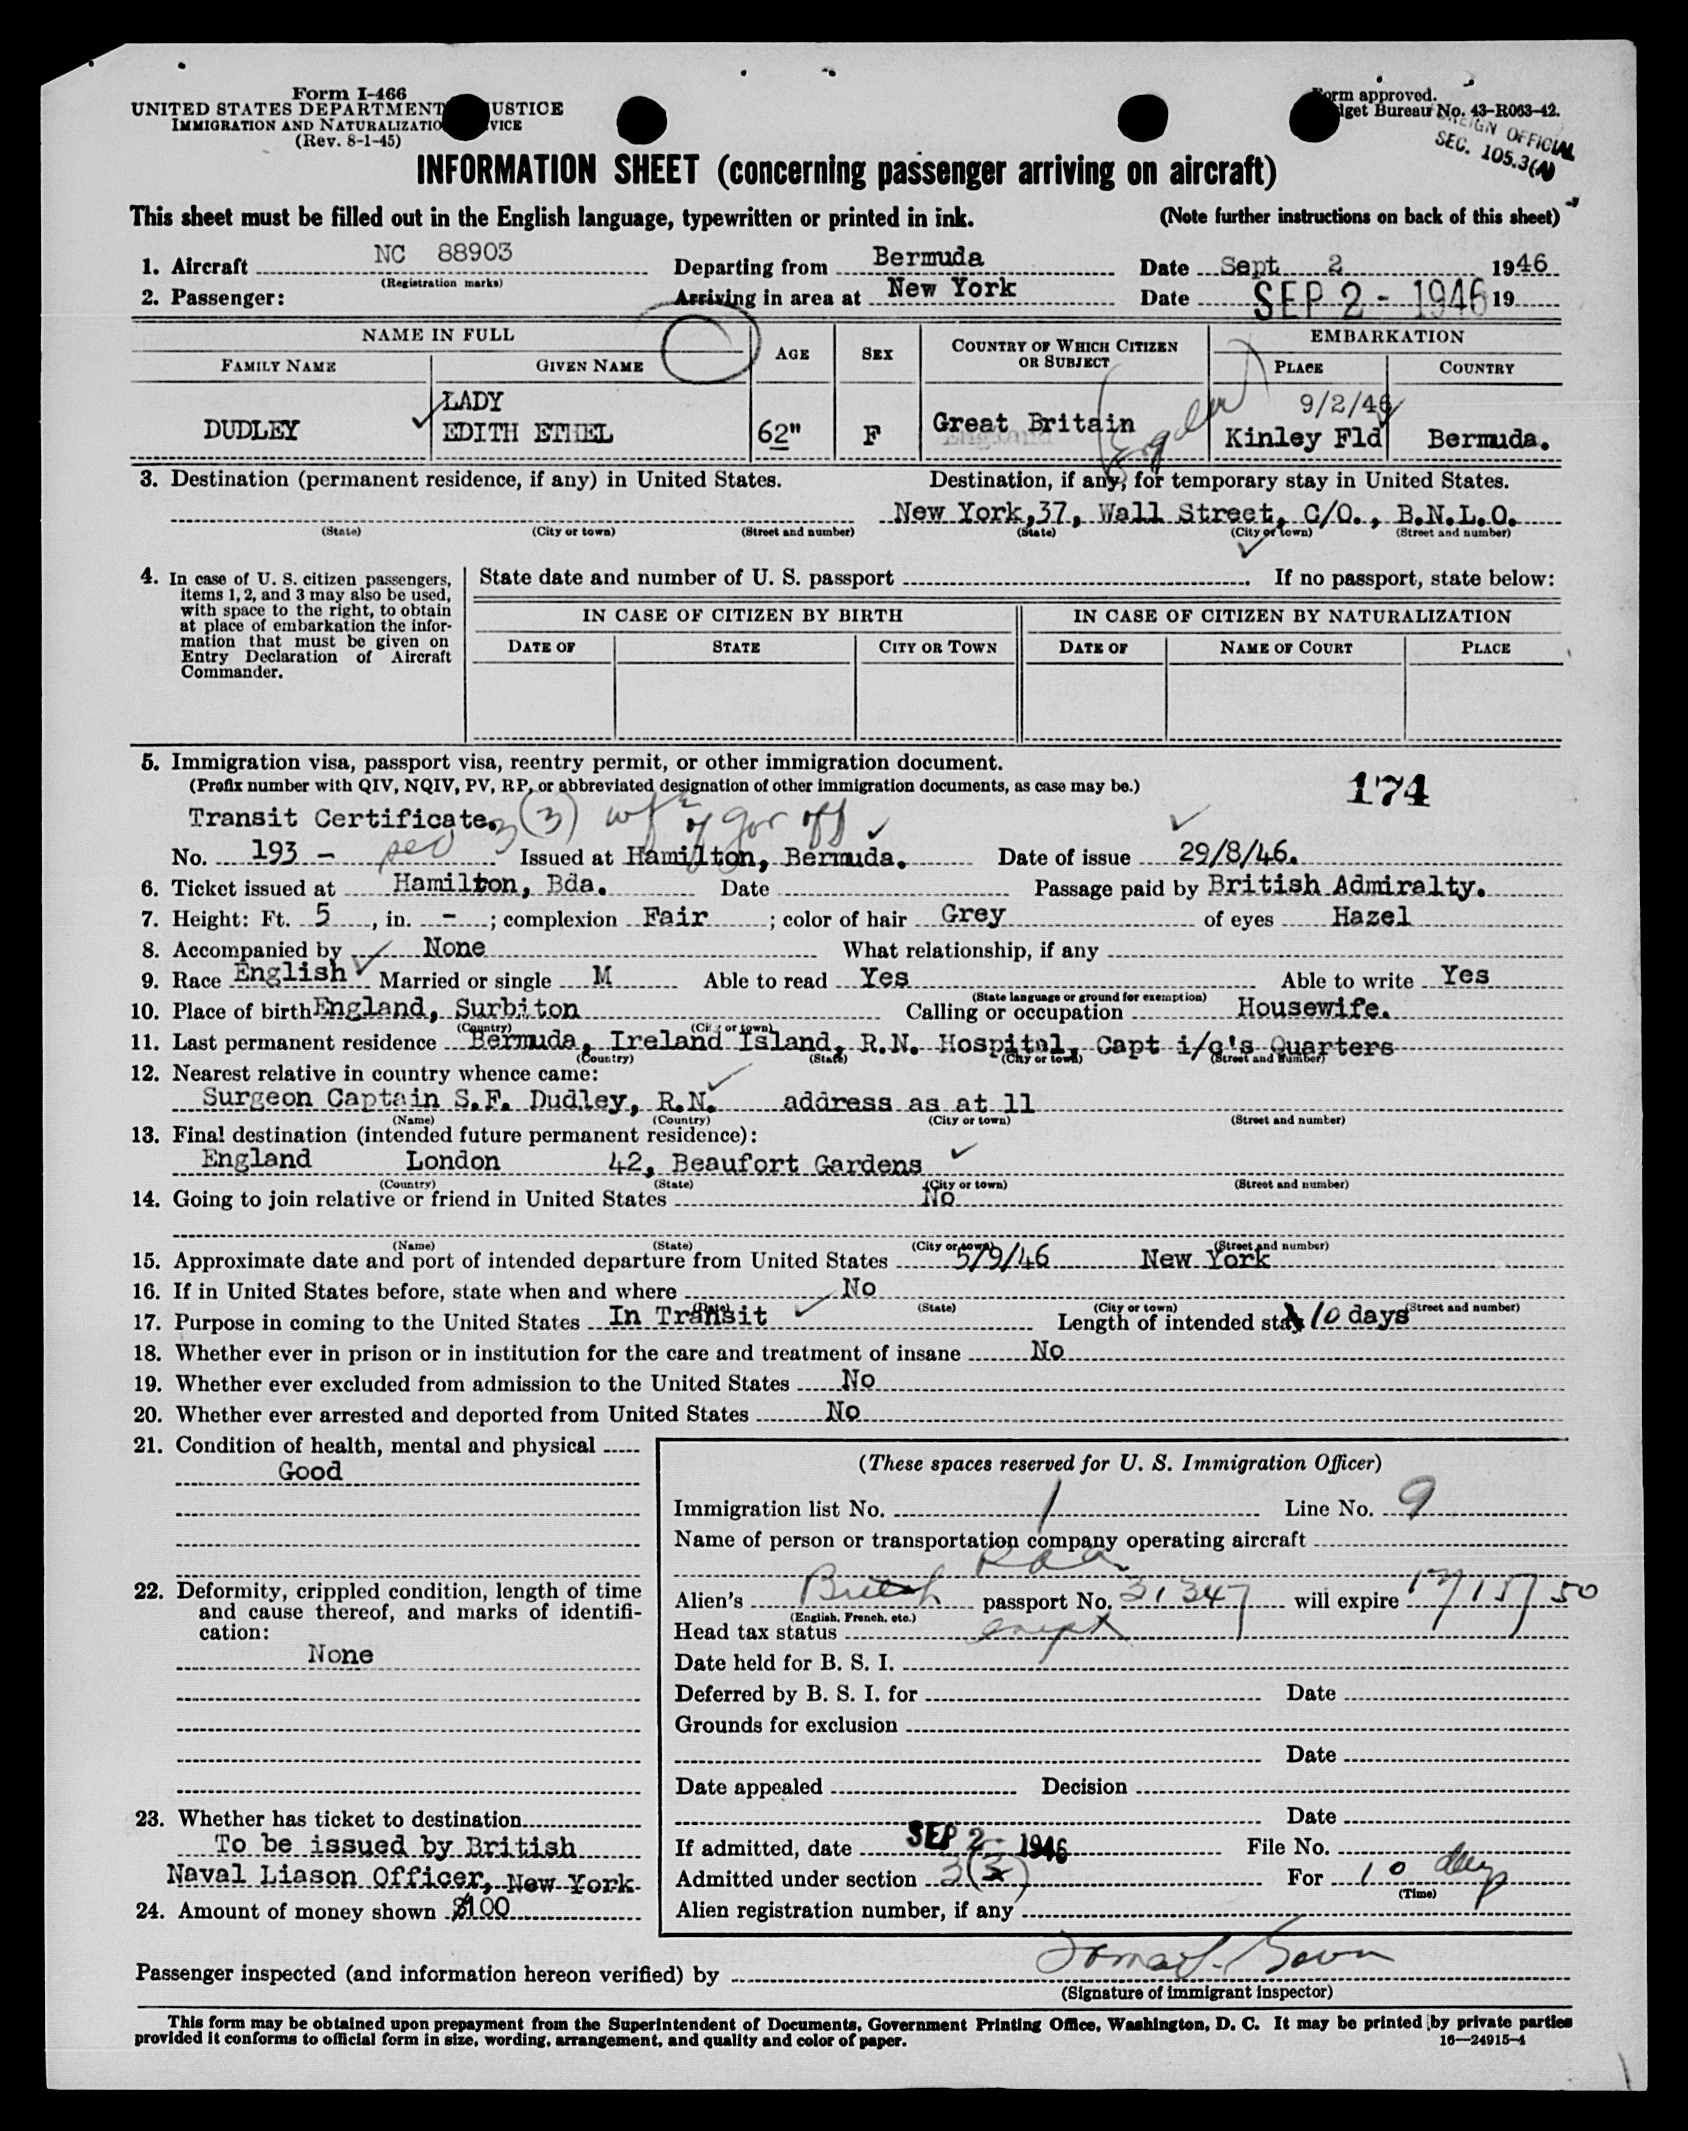 Form I-466
UNITED STATES DEPARTMENT JUSTICE
IMMIGRATION AND NATURALIZATION SERVICE
(Rev. 8-1-45)
Form approved.
Budget Bureau No. 43-R063-42.
FOREIGN OFFICIAL
SEC. 105.3(A)
INFORMATION SHEET (concerning passenger arriving on aircraft)
This sheet must be filled out in the English language, typewritten or printed in ink. (Note further instructions on back of this sheet)
1. Aircraft NC 88903 Departing from Bermuda Date Sept 2 1946
(Registration marks)
2. Passenger: Arriving in area at New York Date SEP 2 - 1946 19
NAME IN FULL AGE SEX COUNTRY OF WHICH CITIZEN OR SUBJECT EMBARKATION
FAMILY NAME GIVEN NAME PLACE COUNTRY
LADY 9/2/46
DUDLEY EDITH ETHEL 62" F Great Britain Kinley Fld Bermuda.
3. Destination (permanent residence, if any) in United States. Destination, if any, for temporary stay in United States.
New York,37, Wall Street, C/O., B.N.L.O.
(State) (City or town) (Street and number) (State) (City or town) (Street and number)
4. In case of U. S. citizen passengers, items 1, 2, and 3 may also be used, with space to the right, to obtain at place of embarkation the information that must be given on Entry Declaration of Aircraft Commander.
State date and number of U. S. passport . If no passport, state below:
IN CASE OF CITIZEN BY BIRTH IN CASE OF CITIZEN BY NATURALIZATION
DATE OF STATE CITY OR TOWN DATE OF NAME OF COURT PLACE
5. Immigration visa, passport visa, reentry permit, or other immigration document.
(Prefix number with QIV, NQIV, PV, RP, or abbreviated designation of other immigration documents, as case may be.) 174
Transit Certificate. 3(3) wf of gov off
No. 193 - Issued at Hamilton, Bermuda. Date of issue 29/8/46.
6. Ticket issued at Hamilton, Bda. Date Passage paid by British Admiralty.
7. Height: Ft. 5, in. -; complexion Fair; color of hair Grey of eyes Hazel
8. Accompanied by None What relationship, if any
9. Race English Married or single M Able to read Yes Able to write Yes
(State language or ground for exemption)
10. Place of birth England, Surbiton Calling or occupation Housewife.
(Country) (City or town)
11. Last permanent residence Bermuda, Ireland Island, R.N. Hospital, Capt i/c's Quarters
(Country) (State) (City or town) (Street and number)
12. Nearest relative in country whence came:
Surgeon Captain S.F. Dudley, R.N. address as at 11
(Name) (Country) (City or town) (Street and number)
13. Final destination (intended future permanent residence):
England London 42, Beaufort Gardens
(Country) (State) (City or town) (Street and number)
14. Going to join relative or friend in United States No
(Name) (State) (City or town) (Street and number)
15. Approximate date and port of intended departure from United States 5/9/46 New York
16. If in United States before, state when and where No
(Date) (State) (City or town) (Street and number)
17. Purpose in coming to the United States In Transit Length of intended stay 10 days
18. Whether ever in prison or in institution for the care and treatment of insane No
19. Whether ever excluded from admission to the United States No
20. Whether ever arrested and deported from United States No
21. Condition of health, mental and physical
Good
22. Deformity, crippled condition, length of time and cause thereof, and marks of identification:
None
23. Whether has ticket to destination
To be issued by British
Naval Liason Officer, New York.
24. Amount of money shown $100
(These spaces reserved for U. S. Immigration Officer)
Immigration list No. 1 Line No. 9
Name of person or transportation company operating aircraft
Alien's British passport No. 31347 will expire
(English, French, etc.)
Head tax status exempt
Date held for B. S. I.
Deferred by B. S. I. for Date
Grounds for exclusion
Date
Date appealed Decision
Date
If admitted, date SEP 2 - 1946 File No.
Admitted under section 3(3) For 10 days
(Time)
Alien registration number, if any
Passenger inspected (and information hereon verified) by
(Signature of immigrant inspector)
This form may be obtained upon prepayment from the Superintendent of Documents, Government Printing Office, Washington, D. C. It may be printed by private parties
provided it conforms to official form in size, wording, arrangement, and quality and color of paper. 16—24915-1